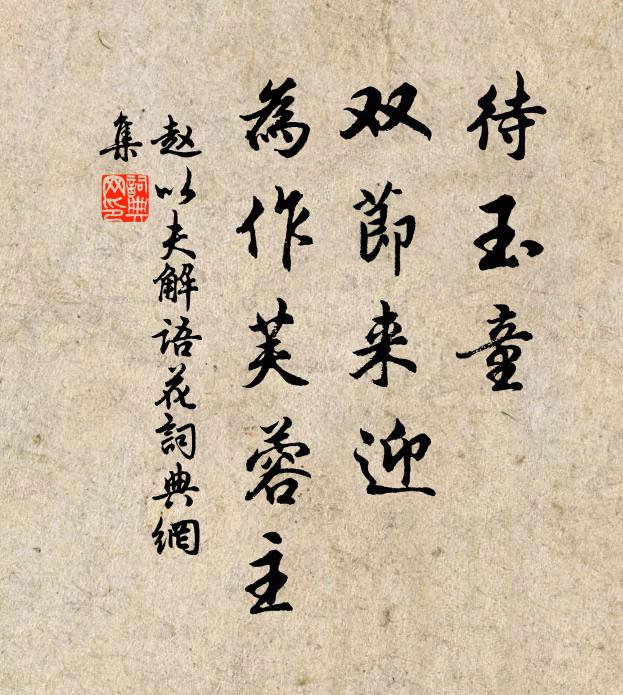 待玉童
双節来迎
為作芙蓉主
赵以夫解语花詞典網
集
詞典
网印